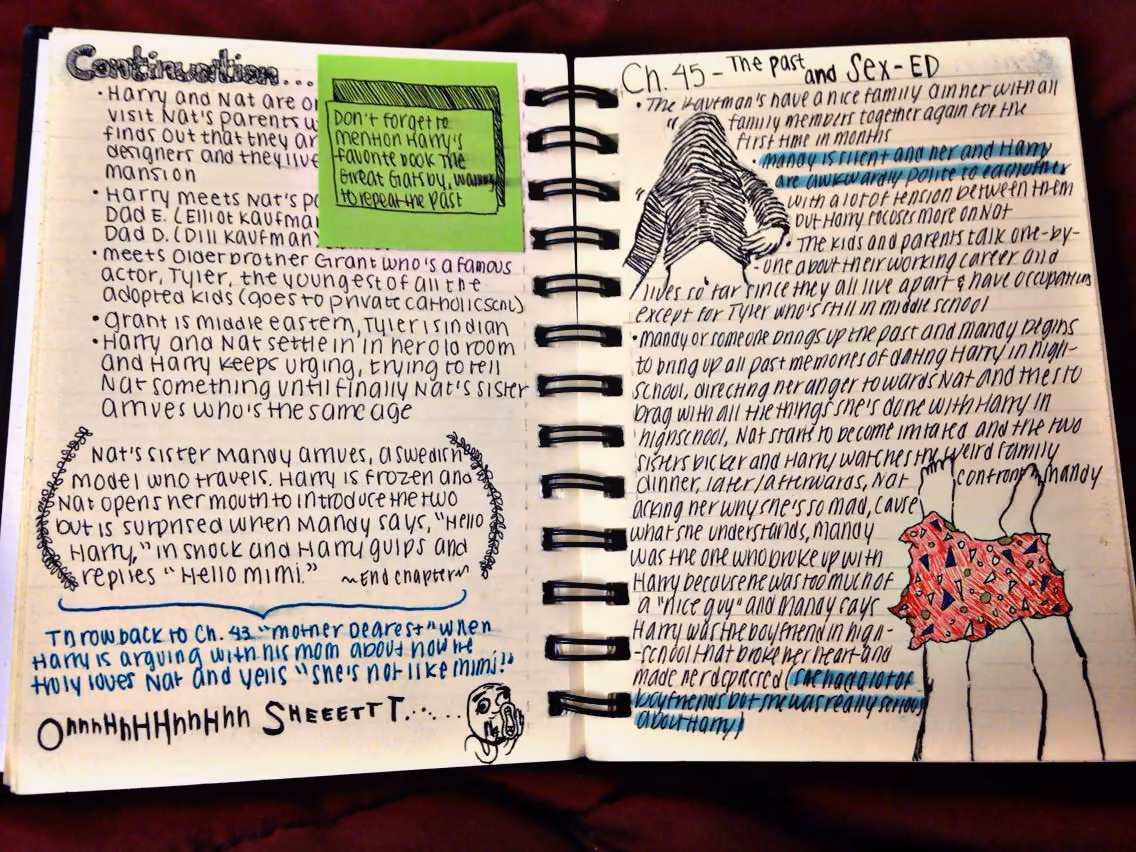 Continuation...
• Harry and Nat are o
visit Nat's parents w
finds out that they ar
designers and they live
mansion
• Harry meets Nat's p
Dad E. (Elliot Kaufma
Dad D. (Dill Kaufman)
• meets older brother Grant who's a famous
actor, Tyler, the youngest of all the
adopted kids (goes to private catholic
• Grant is middle eastern, Tyler is indian
• Harry and Nat settle in in her old room
and Harry keeps urging, trying to tell
Nat something until finally Nat's sister
arrives who's the same age
Don't forget to
mention Harry's
favorite book The
Great Gatsby,
to repeat the past
Nat's sister Mandy arrives, a swedish
model who travels. Harry is frozen and
Nat opens her mouth to introduce the two
but is surprised when Mandy says, "Hello
Harry," in shock and Harry gulps and
replies "Hello mimi." ~End chapter~
Throwback to Ch. 43 "Mother Dearest" when
Harry is arguing with his mom about how he
truly loves Nat and yells "she's not like mimi!"
OhhhHhHHhhHhh SHEEETTT......
Ch. 45 - The past and Sex-ED
• The Kaufman's have a nice family dinner with all
family members together again for the
first time in months
• Mandy is silent and her and Harry
are awkwardly polite to eachother
with a lot of tension between them
but Harry focuses more on Nat
• The kids and parents talk one-by-
-one about their working career and
lives so far since they all live apart & have occupations
except for Tyler who's still in middle school
• Mandy or someone brings up the past and Mandy begins
to bring up all past memories of dating Harry in high-
school, directing her anger towards Nat and tries to
brag with all the things she's done with Harry in
highschool, Nat start to become irritated and the two
sisters bicker and Harry watches the weird family
dinner, later/afterwards, Nat confront Mandy
asking her why she's so mad, cause
what she understands, Mandy
was the one who broke up with
Harry because he was too much of
a "nice guy" and Mandy says
Harry was the boyfriend in high-
-school that broke her heart and
made her depressed (she had a lot of
boyfriends but she was really serious
about Harry)